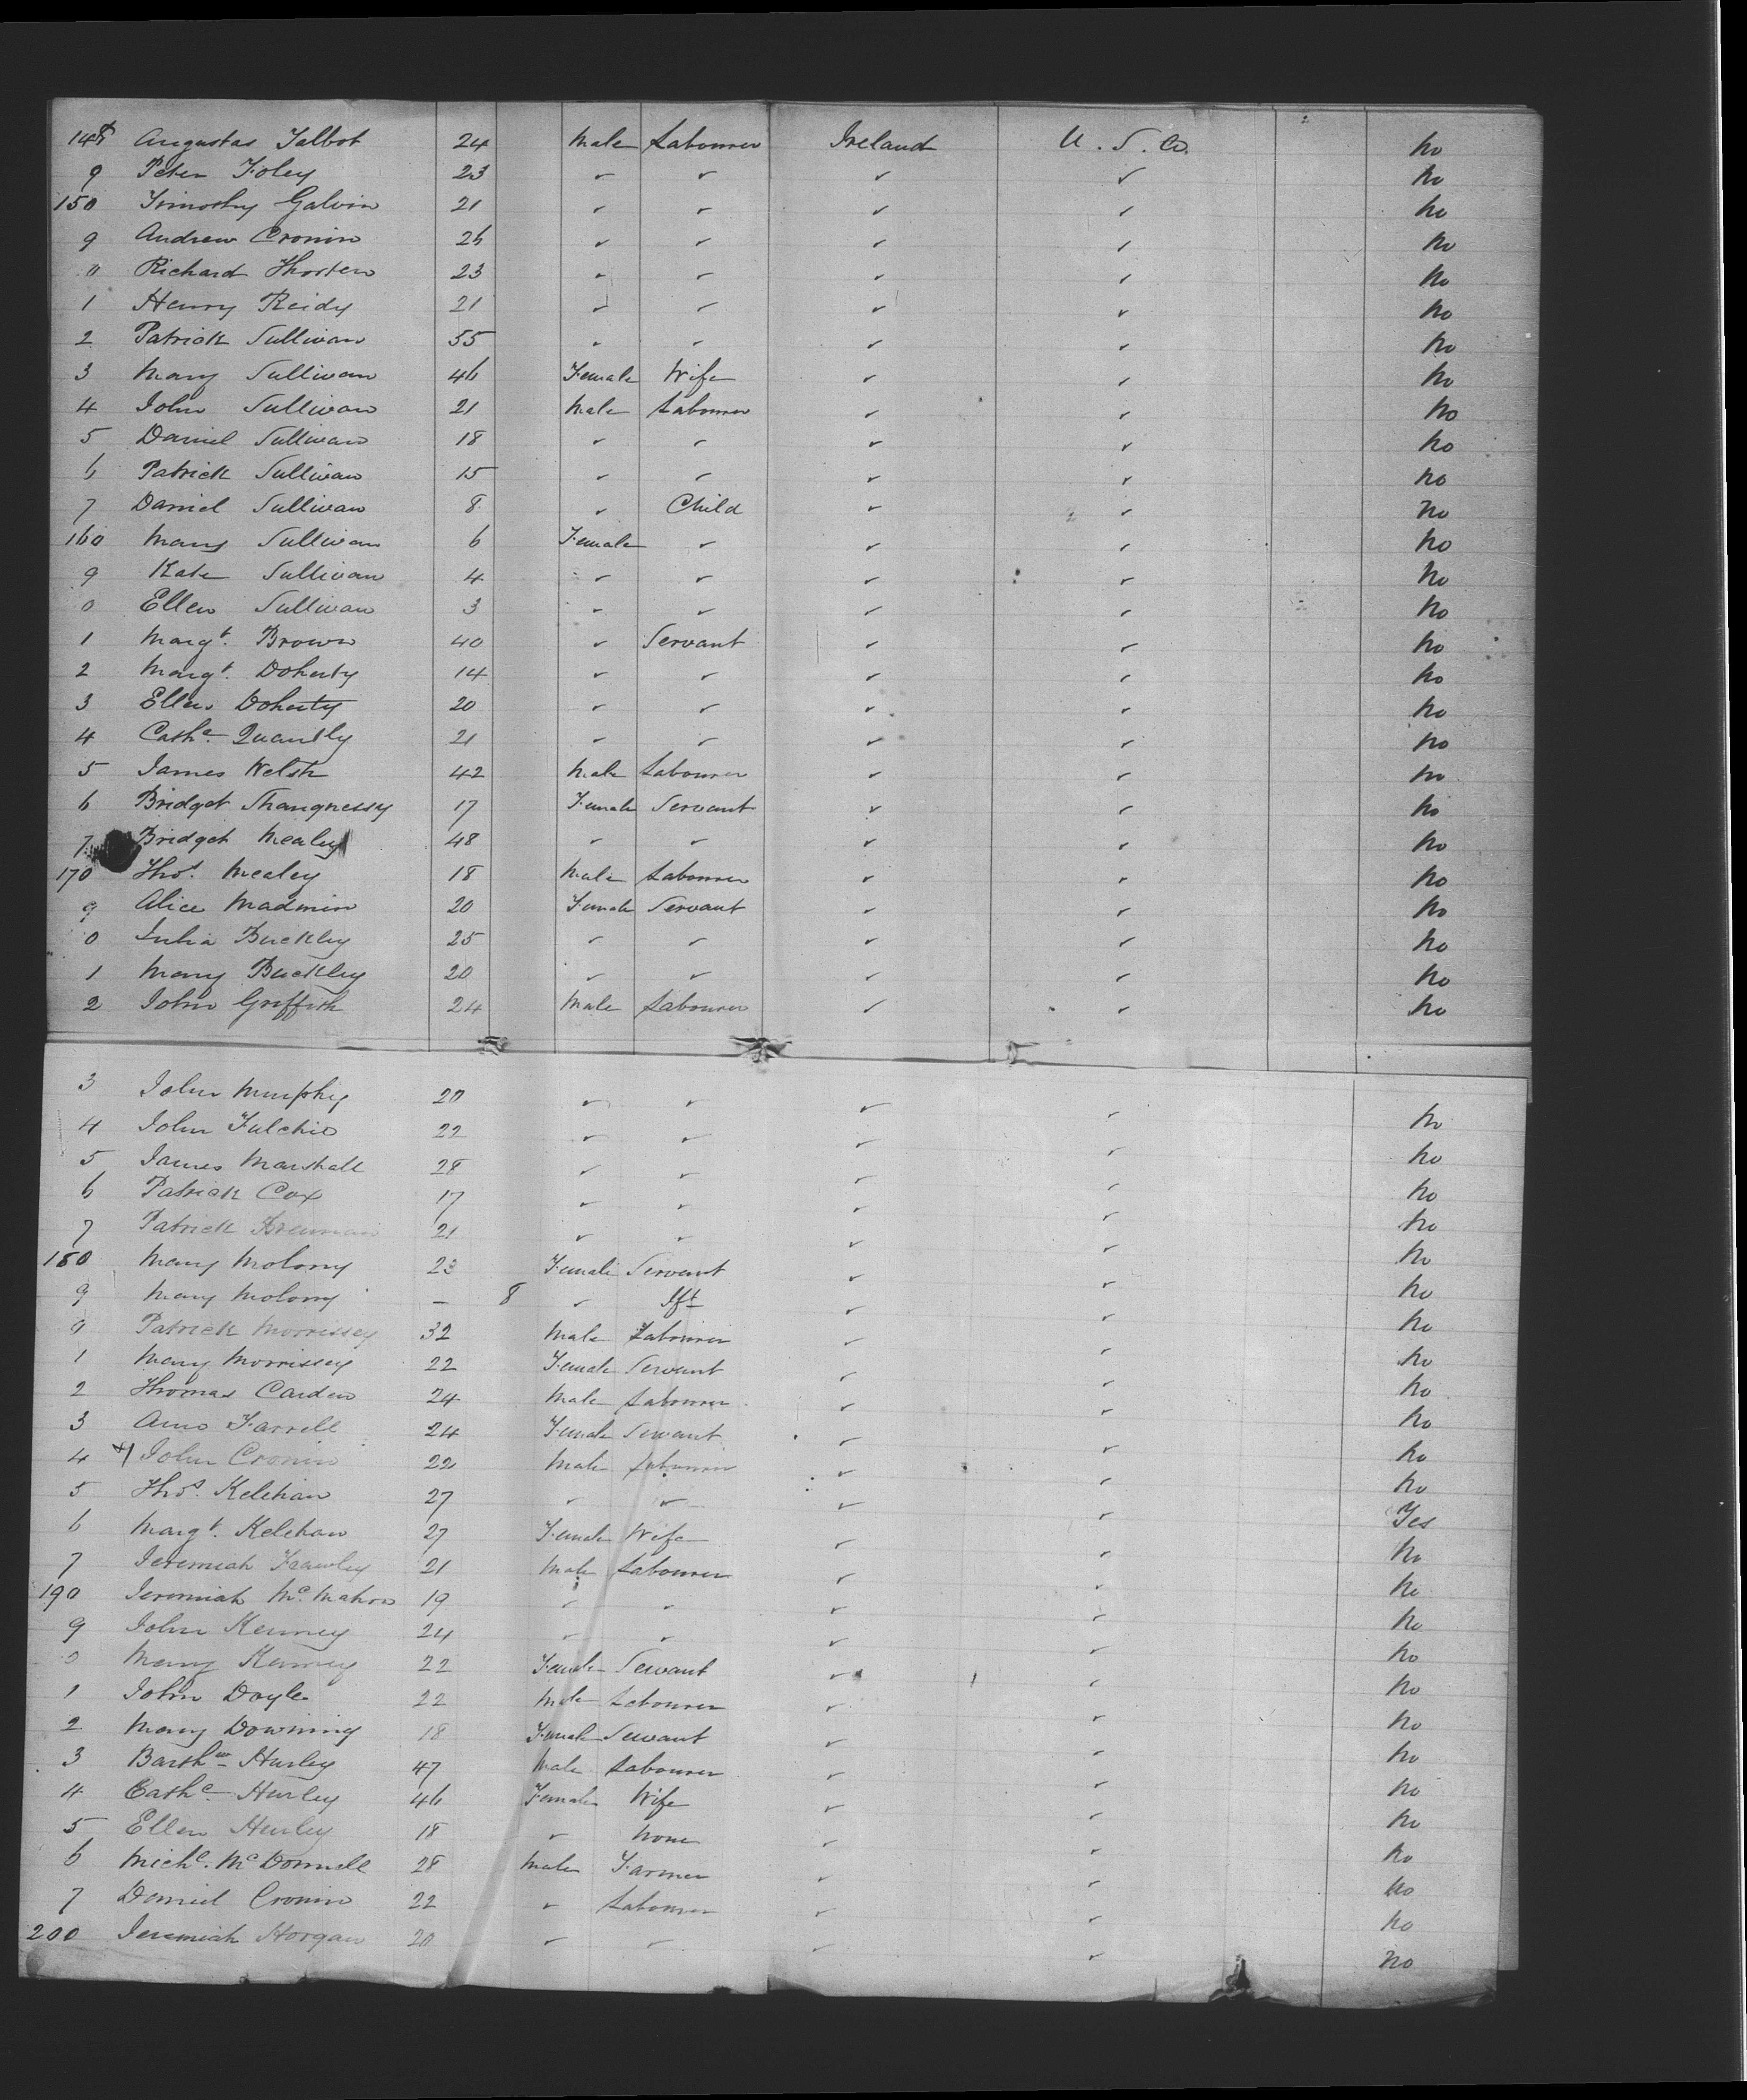 148 Augustas Talbot 24 Male Labourer Ireland U.S. Co. No
9 Peter Foley 23 " " " " No
150 Timothy Galvin 21 " " " " No
9 Andrew Cronin 26 " " " " No
0 Richard 23 " " " " No
1 Henry Reidy 21 " " " " No
2 Patrick Sullivan 55 " " " " No
3 Mary Sullivan 46 Female Wife " " No
4 John Sullivan 21 Male Labourer " " No
5 Daniel Sullivan 18 " " " " No
6 Patrick Sullivan 15 " " " " No
7 Daniel Sullivan 8 " Child " " No
160 Mary Sullivan 6 Female " " " No
9 Kate Sullivan 4 " " " " No
0 Ellen Sullivan 3 " " " " No
1 Margt. Brown 40 " Servant " " No
2 Margt. Doherty 14 " " " " No
3 Ellen Doherty 20 " " " " No
4 Cathe. 21 " " " " No
5 James Welsh 42 Male Labourer " " No
6 Bridget Shaugnessy 17 Female Servant " " No
7 Bridget Mealey 48 " " " " No
170 Thos. Mealey 18 Male Labourer " " No
9 Alice Madmin 20 Female Servant " " No
0 Julia Buckley 25 " " " " No
1 Mary Buckley 20 " " " " No
2 John Griffith 24 Male Labourer " " No
3 John Murphy 20 " " " " No
4 John 22 " " " " No
5 James Marshall 28 " " " " No
6 Patrick Cox 17 " " " " No
7 Patrick 21 " " " " No
180 Mary Molony 23 Female Servant " " No
9 Mary Molony — 8 " Ift " " No
0 Patrick Morrissey 32 Male Labourer " " No
1 Mary Morrissey 22 Female Servant " " No
2 Thomas Carden 24 Male Labourer " " No
3 Ann Farrell 24 Female Servant " " No
4 John Cronin 22 Male Labourer " " No
5 Thos. Kelehan 27 " " " " Yes
6 Margt. Kelehan 27 Female Wife " " No
7 Jeremiah 21 Male Labourer " " No
190 Jeremiah Mc.Mahon 19 " " " " No
9 John Kenney 24 " " " " No
0 Mary Kenney 22 Female Servant " " No
1 John Doyle 22 Male Labourer " " No
2 Mary Downing 18 Female Servant " " No
3 Barthw Hurley 47 Male Labourer " " No
4 Cathe. Hurley 46 Female Wife " " No
5 Ellen Hurley 18 " None " " No
6 Michl. McDonnell 28 Male Farmer " " No
7 Daniel Cronin 22 " Labourer " " No
200 Jeremiah Horgan 20 " " " " No